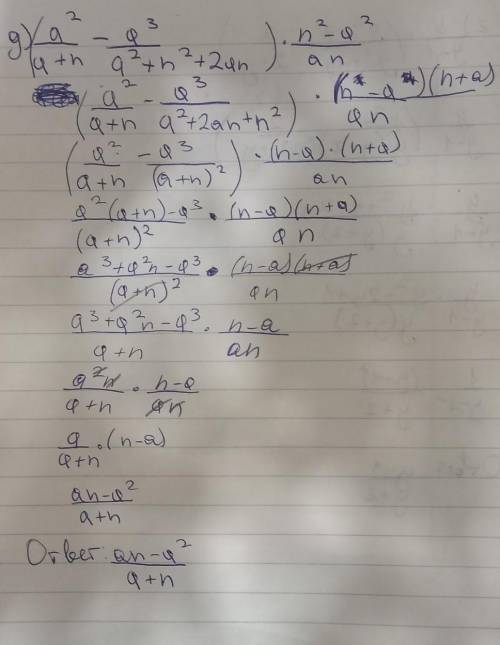 g) (a²/(a+n) − a³/(a²+n²+2an)) · (n²−a²)/(an)
(a²/(a+n) − a³/(a²+2an+n²)) · (n−a)(n+a)/(an)
(a²/(a+n) − a³/(a+n)²) · (n−a)·(n+a)/(an)
(a²(a+n)−a³)/(a+n)² · (n−a)(n+a)/(an)
(a³+a²n−a³)/(a+n)² · (n−a)(n+a)/(an)
(a³+a²n−a³)/(a+n) · (n−a)/(an)
(a²n)/(a+n) · (n−a)/(an)
a/(a+n) · (n−a)
(an−a²)/(a+n)
Ответ: (an−a²)/(a+n)